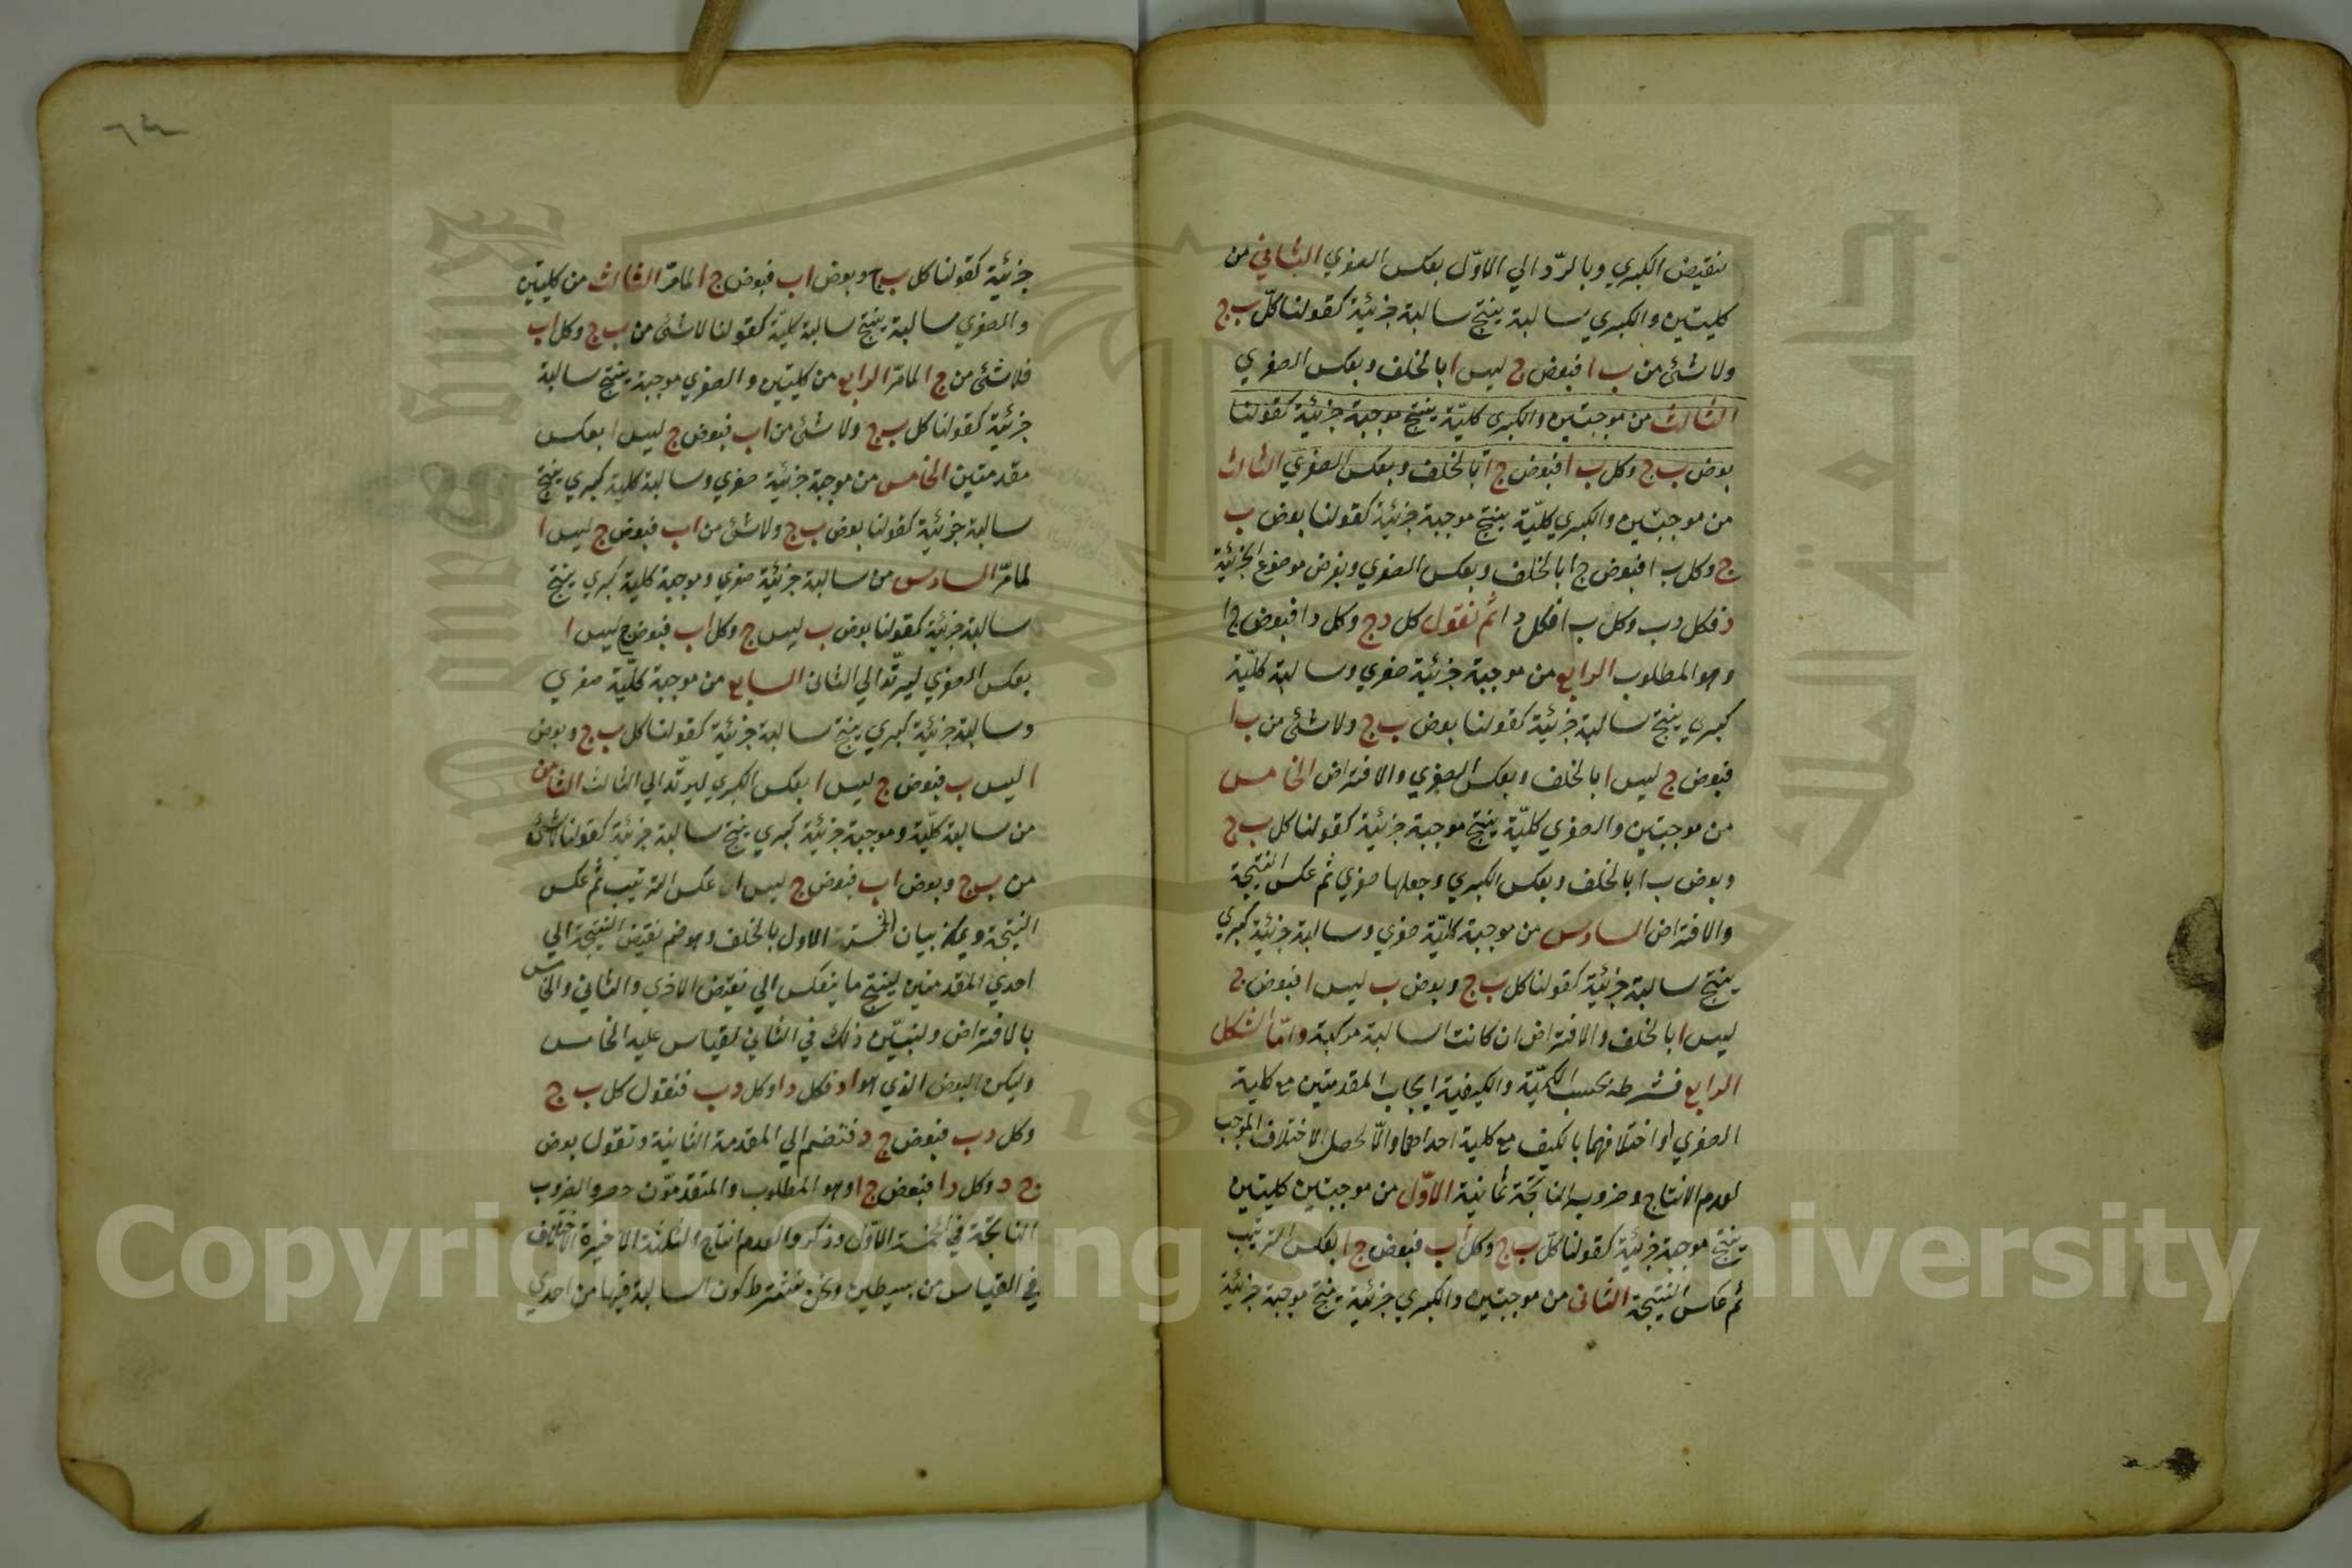 بنقيض الكبري وبالردّ الي الاوّل بعكس الصغري الثاني من
كليتين والكبري سالبة ينتج سالبة جزئية كقولنا كلّ ب ج
ولا شئ من ب ا فبعض ج ليس ا بالخلف وبعكس الصغري
الثالث من موجبتين والكبري كليّة ينتج موجبة جزئية كقولنا
بعض ب ج وكل ب ا فبعض ج ا بالخلف وبعكس الصغري الثالث
من موجبتين والكبري كليّة ينتج موجبة جزئية كقولنا بعض ب
ج وكل ب ا فبعض ج ا بالخلف وبعكس الصغري وبفرض موضوع الجزئية
د فكل د ب وكل ب ا فكل د ا ثم نقول كل د ج وكل د ا فبعض ج ا
وهو المطلوب الرابع من موجبة جزئية صغري وسالبة كليّة
كبري ينتج سالبة جزئية كقولنا بعض ب ج ولا شئ من ب ا
فبعض ج ليس ا بالخلف وبعكس الصغري والافتراض الخامس
من موجبتين والصغري كليّة ينتج موجبة جزئية كقولنا كل ب ج
وبعض ب ا بالخلف وبعكس الكبري وجعلها صغري ثم عكس النتيجة
والافتراض السادس من موجبة كليّة صغري وسالبة جزئية كبري
ينتج سالبة جزئية كقولنا كل ب ج وبعض ب ليس ا فبعض ج
ليس ا بالخلف والافتراض ان كانت السالبة مركبة وامّا الشكل
الرابع فشرطه بحسب الكميّة والكيفية ايجاب المقدمتين مع كلية
الصغري او اختلافهما بالكيف مع كلية احداهما والّا لحصل الاختلاف الموجب
لعدم الانتاج وضروبه الناتجة ثمانية الاوّل من موجبتين كليتين
ينتج موجبة جزئية كقولنا كلّ ب ج وكل ا ب فبعض ج ا بعكس الترتيب
ثم عكس النتيجة الثاني من موجبتين والكبري جزئية ينتج موجبة جزئية
جزئية كقولنا كل ب ج وبعض ا ب فبعض ج ا لما مرّ الثالث من كليتين
والصغري سالبة ينتج سالبة كليّة كقولنا لا شئ من ب ج وكل ا ب
فلا شئ من ج ا لما مرّ الرابع من كليتين والصغري موجبة ينتج سالبة
جزئية كقولنا كل ب ج ولا شئ من ا ب فبعض ج ليس ا بعكس
مقدمتين الخامس من موجبة جزئية صغري وسالبة كلية كبري ينتج
سالبة جزئية كقولنا بعض ب ج ولا شئ من ا ب فبعض ج ليس ا
لما مرّ السادس من سالبة جزئية صغري وموجبة كلية كبري ينتج
سالبة جزئية كقولنا بعض ب ليس ج وكل ا ب فبعض ج ليس ا
بعكس الصغري ليرتدّ الي الثاني السابع من موجبة كليّة صغري
وسالبة جزئية كبري ينتج سالبة جزئية كقولنا كل ب ج وبعض
ا ليس ب فبعض ج ليس ا بعكس الكبري ليرتدّ الي الثالث الثامن
من سالبة كليّة وموجبة جزئية كبري ينتج سالبة جزئية كقولنا لا شئ
من ب ج وبعض ا ب فبعض ج ليس ا عكس الترتيب ثم عكس
النتيجة ويمكن بيان الخمسة الاول بالخلف وهو ضم نقيض النتيجة الي
احدي المقدمتين لينتج ما ينعكس الي نقيض الاخري والثاني والخامس
بالافتراض ولنبيّن ذلك في الثاني لقياس عليه الخامس
وليكن البعض الذي هو ا د فكل د ا وكل د ب فنقول كل ب ج
وكل د ب فبعض ج د فنضم الي المقدمة الثانية ونقول بعض
ج د وكل د ا فبعض ج ا وهو المطلوب والمتقدّمون حصروا الضروب
الناتجة في الخمسة الاول وذكروا لعدم انتاج الثلثة الاخيرة الاختلاف
في القياس من بسيطين ونحن نشترط كون السالبة فيها من احدي
Copyright © King Saud University
King Saud University
جامعة الملك سعود
٦٤